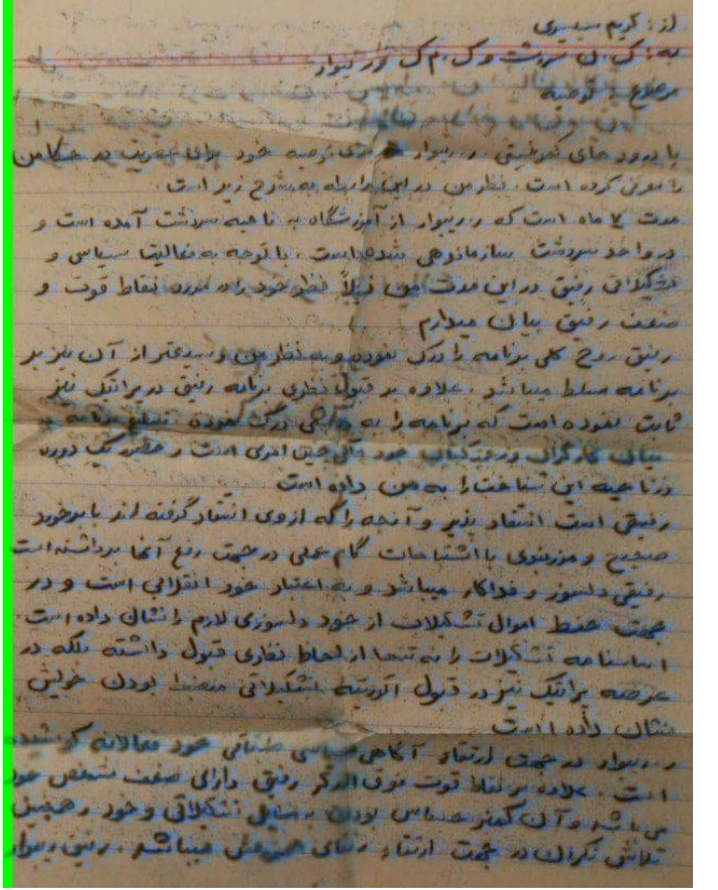 از: کریم
به: ک. ن سردشت و ک. م ک ور یبوار
موضوع: توصیه
با درود های کمونیستی، ر. ریبوار توصیه خود برای عضویت در حکا من
را معرفی کرده است. نظر من در این رابطه به شرح زیر است.
مدت ۷ ماه است که ر. ریبوار از آموزشگاه به ناحیه سردشت آمده است و
در واحد سردشت سازماندهی شده است. با توجه به فعالیت سیاسی و
تشکیلاتی رفیق در این مدت من قبلاً نظر خود را در مورد نقاط قوت و
ضعف رفیق بیان میدارم
رفیق روح کلی برنامه را درک نموده و به نظر من وسیعتر از آن نیز بر
برنامه مسلط میباشد. علاوه بر قبول نظری برنامه رفیق در پراتیک نیز
ثابت نموده است که برنامه را به درک نموده تبلیغ برنامه
میان کارگران و زحمتکشان خود امری است و حضور یک دوره
در ناحیه این شناخت را به من داده است
رفیقی است انتقاد پذیر و آنچه را که از وی انتقاد گرفته اند با برخورد
صحیح و مرزبندی با اشتباهات گام عملی در جهت رفع آنها برداشته است
رفیقی دلسوز و فداکار میباشد و به اعتبار خود انقلابی است و در
جهت حفظ اموال تشکیلات از خود دلسوزی لازم را نشان داده است.
اساسنامه تشکیلات را نه تنها از لحاظ نظری قبول داشته بلکه در
عرصه پراتیک نیز در قبول اتوریته تشکیلاتی منضبط بودن خویش
نشان داده است
ر. ریبوار در جهت ارتقاء آگاهی سیاسی طبقاتی خود فعالانه کوشیده
است. علاوه بر نقاط قوت فوق الذکر رفیق دارای ضعف مشخص خود
می باشد و آن کمتر حساس بودن به مسایل تشکیلاتی و خود و همچنین
تلاش نکردن در جهت ارتقاء رفقای هم میباشد. رفیق ریبوار